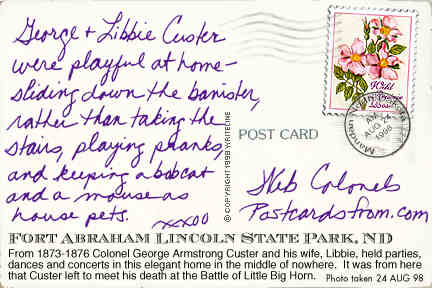 George + Libbie Custer
were playful at home-
sliding down the banister,
rather than taking the
stairs, playing pranks,
and keeping a bobcat
and a mouse as
house pets.
xxxoo
Wild
Prairie
Roses
Mandan, North Dakota
AM
AUG 24
1998
POST CARD
© COPYRIGHT 1998 WRITELINE
Web Colonels
Postcardsfrom.com
FORT ABRAHAM LINCOLN STATE PARK, ND
From 1873-1876 Colonel George Armstrong Custer and his wife, Libbie, held parties,
dances and concerts in this elegant home in the middle of nowhere. It was from here
that Custer left to meet his death at the Battle of Little Big Horn.
Photo taken 24 AUG 98